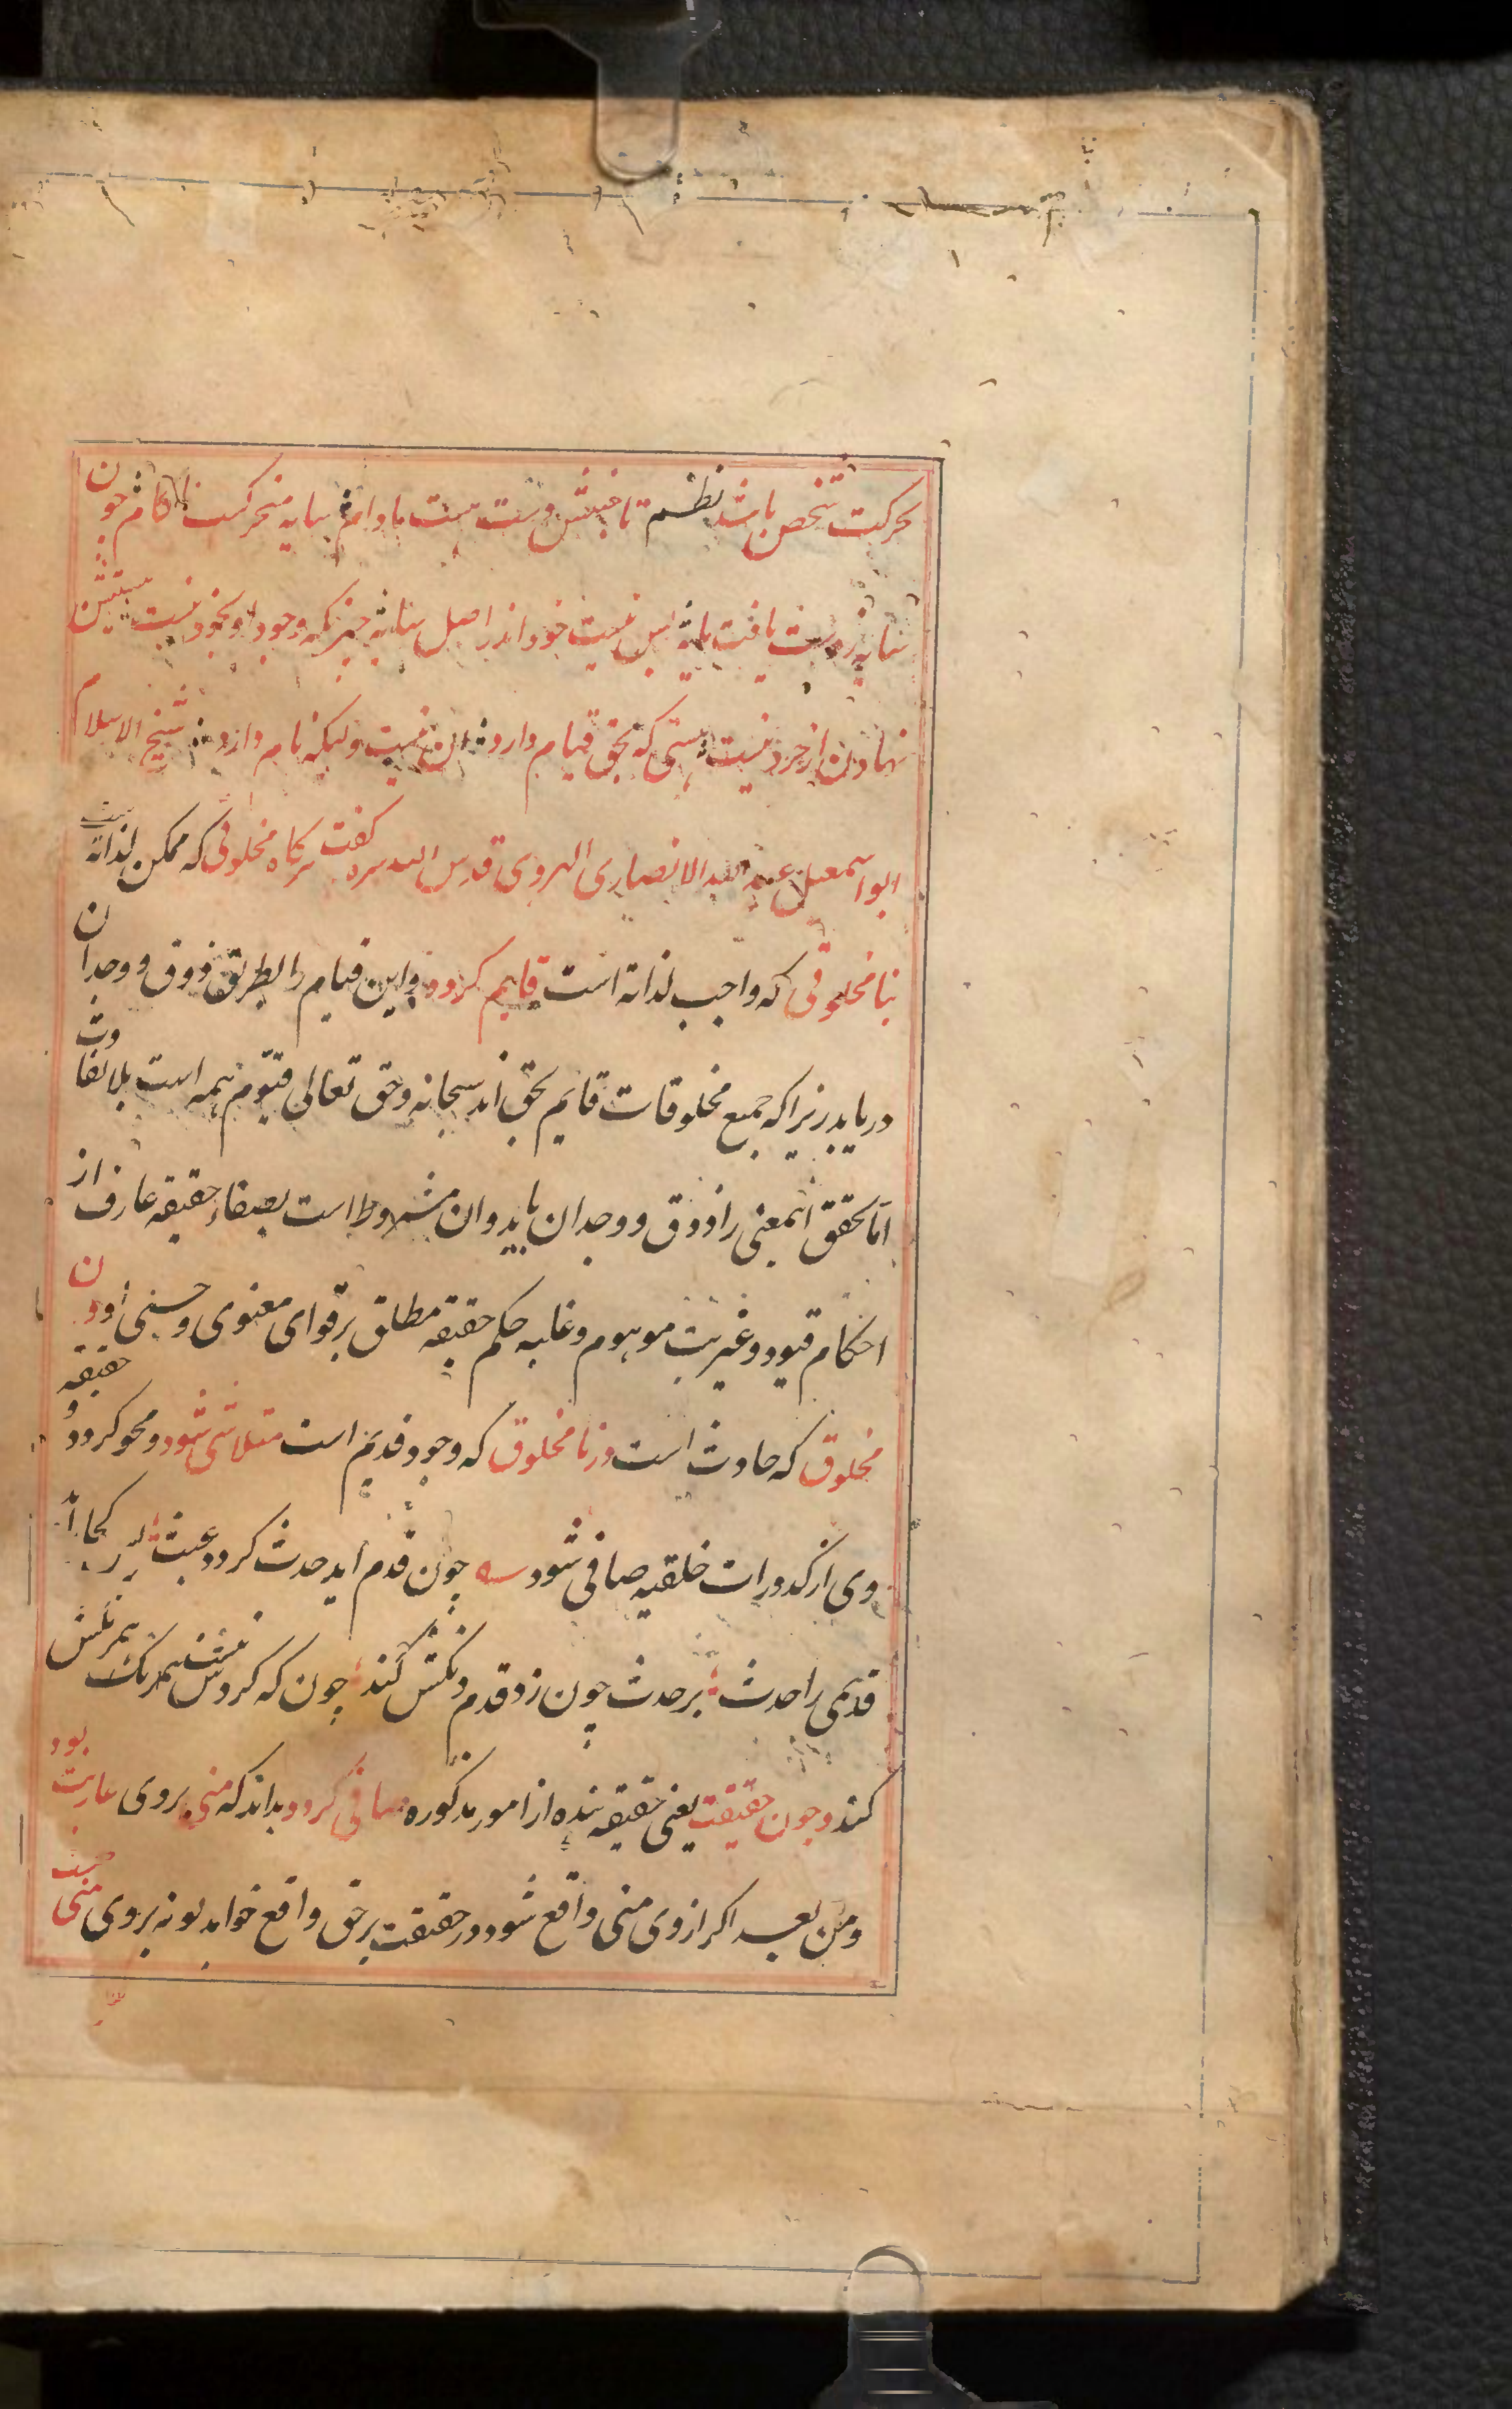 بحرکت شخص باشد نظم تا جنبش دست هست مادام سایه متحرکست ناکام چون
سایه ز دست یافت مایه پس نیست خود اندر اصل سایه چیزیکه وجود او بخود نیست هستیش
نهادن از خرد نیست هستی که بحق قیام دارد ان نیست ولیکن نام دارد شیخ الاسلام
ابو اسمعیل عبد الله الانصاری الهروی قدس الله سره گفت هرگاه مخلوقی که ممکن لذاته است
بنامخلوقی که واجب لذاته است قایم کردد و این قیام را بطریق ذوق و وجدان
دریابد زیرا که جمیع مخلوقات قایم بحق اند سبحانه و حق تعالی قیوم همه است بلا تفاوت
اما تحقق اینمعنی را ذوق و وجدان باید و ان مشروط است بصفاء حقیقه عارف از
احکام قیود و غیریت موهوم و غلبه حکم حقیقه مطلق بر قوای معنوی و حسی او ان
مخلوق که حادث است در نامخلوق که وجود قدیم است متلاشی شود و محو کردد و حقیقه
وی از کدورات خلقیه صافی شود چون قدم اید حدث کردد عبث پس کجا اند
قدیمی را حدث بر حدث چون زد قدم دنکش کند چون که کردش نیست همرنکش
کند و چون حقیقت یعنی حقیقه بنده از امور مذکوره صافی کردد بداند که منی بروی عاریت بود
و من بعد اکر از وی منی واقع شود در حقیقت بر حق واقع خواهد بو نه بروی منی